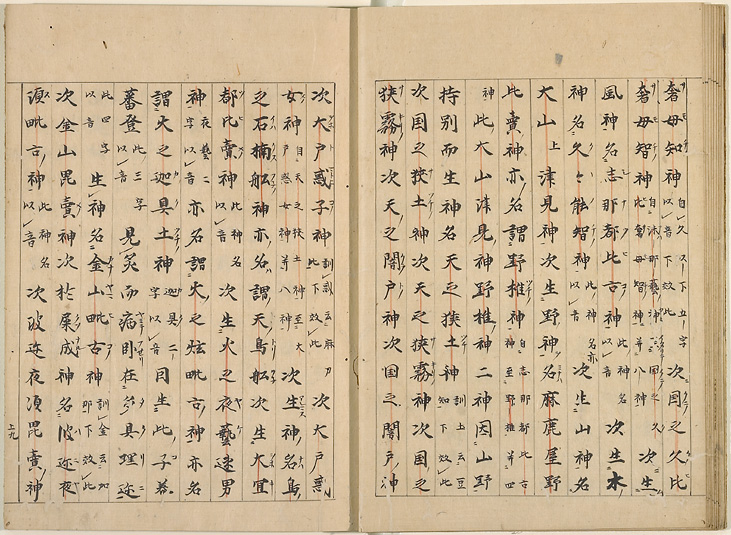 奢母知神自久以下五字以音下效此次国之久比
奢母智神自沫那藝神至国之久比奢母智神并八神次生
風神名志那都比古神此神名以音次生木
神名久々能智神此神名以音次生山神名
大山上津見神次生野神名麻鹿屋野
比賣神亦名謂野椎神自志那都比古神至野椎并四
神此大山津見神野椎神二神因山野
持別而生神名天之狹土神訓土云豆知下效此
次国之狹土神次天之狹霧神次国之
狹霧神次天之闇戸神次国之闇戸神
次大戸惑子神訓惑云麻刀比下效此次大戸惑
女神自天之狹土神至大戸惑女神并八神次生神名鳥
之石楠舩神亦名謂天鳥舩次生大宜
都比賣神此神名以音次生火之夜藝速男
神夜藝二字以音亦名謂火之炫毗古神亦名
謂火之迦具土神迦具二字以音因生此子美
蕃登此三字以音見炙而病臥在多具理迩
此四字以音生神名金山毗古神訓金云加那下效此
次金山毘賣神次於屎成神名波迩夜
須毗古神此神名以音次波迩夜須毘賣神
上九